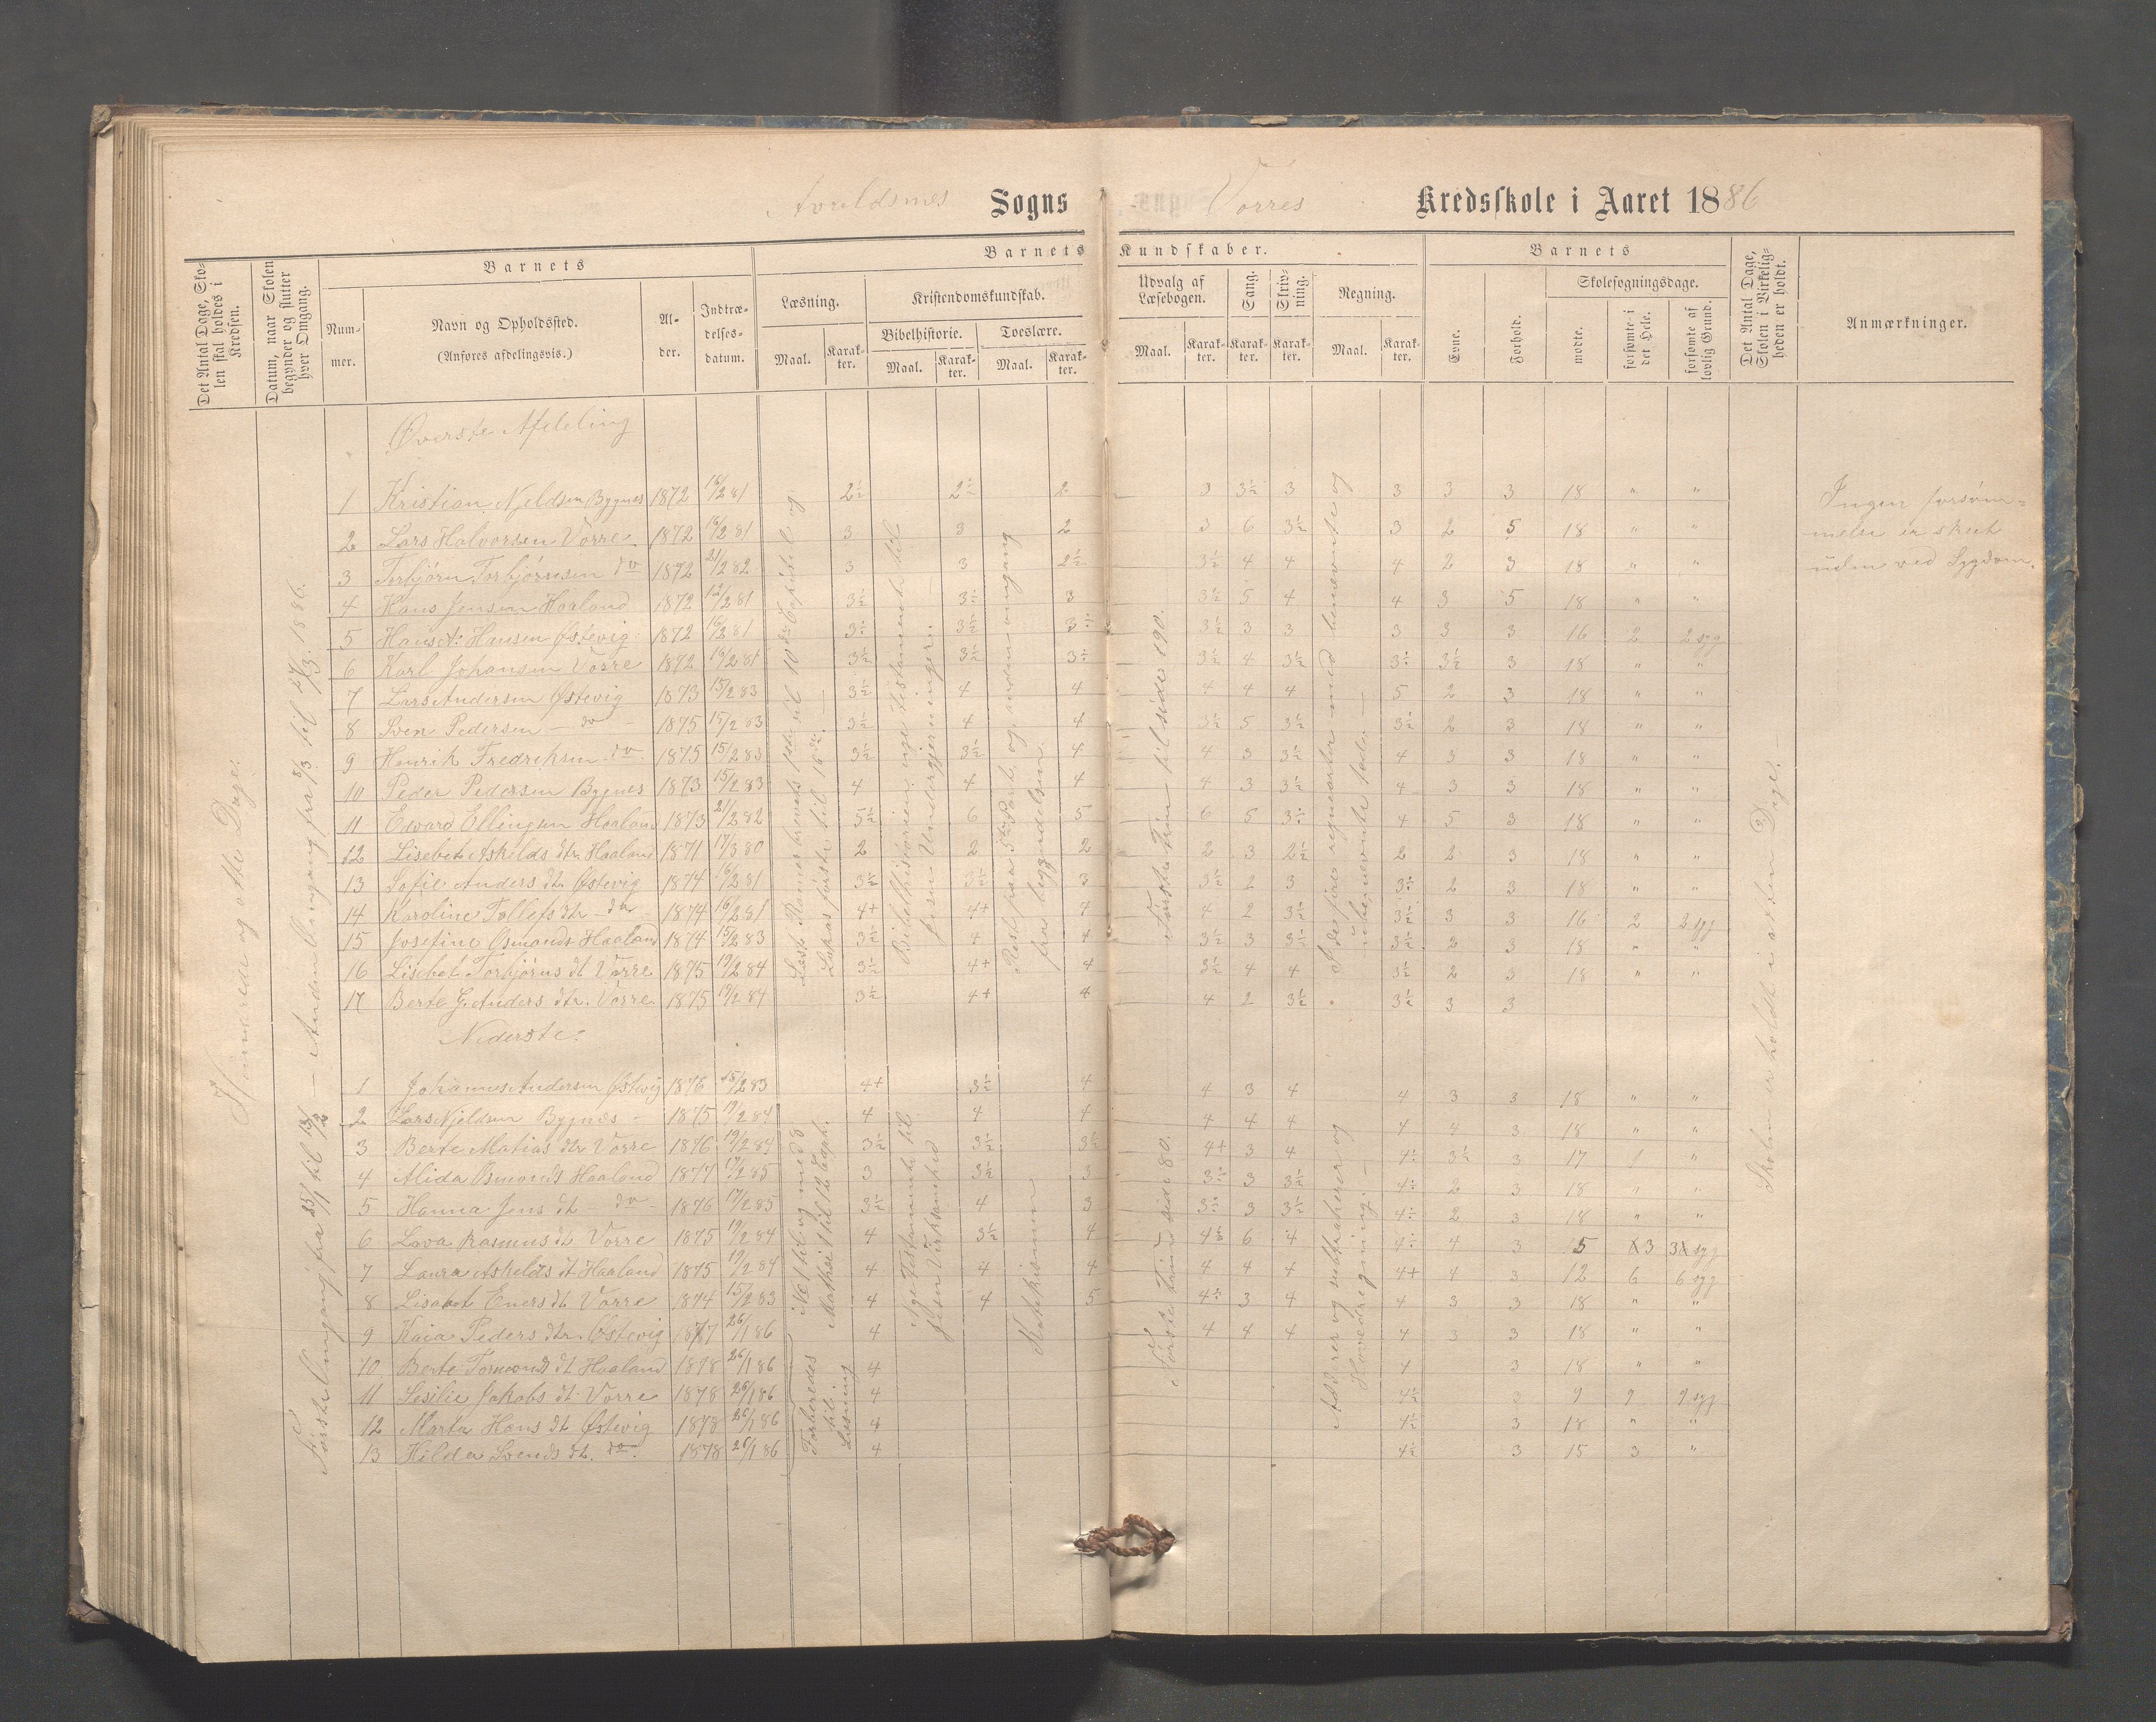 Avaldsnes Sogns Vorres Kredsskole i Aaret 1886
Det Antal Dage, Skolen skal holdes i Kredsen.
Datum, naar Skolen begynder og slutter hver Omgang.
Barnets
Nummer.
Navn og Opholdssted.
(Anføres afdelingsvis.)
Alder.
Indtrædelsesdatum.
Barnets Kundskaber.
Læsning.
Maal. Karakter.
Kristendomskundskab.
Bibelhistorie. Troeslære.
Maal. Karakter. Maal. Karakter.
Udvalg af Læsebogen.
Maal. Karakter.
Sang. Karakter.
Skrivning. Karakter.
Regning.
Maal. Karakter.
Barnets
Evne. Forhold.
Skolesøgningsdage.
mødte. forsømte i det Hele. forsømte af lovlig Grund.
Det Antal Dage, Skolen i Virkeligheden er holdt.
Anmærkninger.
Øverste Afdeling
1 Kristian Njeldsen Bygnes 1872 16/2 81 2½ 2½ 2 3 3½ 3 3 3 3 18 " "
2 Lars Halvorsen Vorre 1872 16/2 81 3 3 2 3 6 3½ 3 2 5 18 " "
3 Torbjörn Torbjörnsen do 1872 21/2 82 3 3 2½ 3½ 4 4 4 2 3 18 " "
4 Hans Jensen Haaland 1872 12/2 81 3½ 3½ 3 3½ 5 4 4 3 5 18 " "
5 Hans A: Hansen Østevig 1872 16/2 81 3½ 3½ 3÷ 3½ 3 3 3 3 3 16 2 2 syg
6 Karl Johansen Vorre 1872 16/2 81 3½ 3½ 3÷ 3½ 4 3½ 3÷ 3½ 3 18 " "
7 Lars Andersen Østevig 1873 15/2 83 3½ 4 4 4 4 4 5 2 3 18 " "
8 Sven Pedersen do 1875 15/2 83 3½ 4 4 3½ 5 3½ 3½ 2 3 18 " "
9 Henrik Fredriksen do 1875 15/2 83 3½ 3½ 4 4 3 3½ 4 3 3 18 " "
10 Peder Pedersen Bygnes 1873 15/2 83 4 4 4 4 3 3½ 4 3 3 18 " "
11 Edvard Ellingsen Haaland 1873 21/2 82 5½ 6 5 6 5 3÷ 4 5 3 18 " "
12 Lisebet Askelds dtr Haaland 1871 17/3 80 2 2 2 2 3 2½ 2 2 3 18 " "
13 Sofie Anders dt. Østevig 1874 16/2 81 3½ 3½ 3 3½ 2 3 3÷ 2 3 18 " "
14 Karoline Tollefs dtr do 1874 16/2 81 4+ 4+ 4 4 2 3½ 3½ 3 3 16 2 2 syg
15 Josefine Osmonds Haaland 1874 15/2 83 3½ 4 4 3½ 3 3½ 3½ 2 3 18 " "
16 Lisebet Torbjörns dt Vorre 1875 19/2 84 3½ 4+ 4 3½ 4 4 3½ 2 3 18 " "
17 Berte G. Anders dtr. Vorre 1875 19/2 84 3½ 4+ 4 4 2 3½ 3½ 3 3
Nederste:
1 Johannes Andersen Østevig 1876 15/2 83 4+ 3½ 4 4 3 4 4 3 3 18 " "
2 Lars Njeldsen Bygnes 1875 19/2 84 4 4 4 4 4 4 4 4 3 18 " "
3 Berte Matias dtr Vorre 1876 19/2 84 3½ 3½ 3½ 4+ 3 4 4÷ 3½ 3 17 1 "
4 Alida Osmonds Haaland 1877 17/2 85 3 3½ 3 3÷ 3 3½ 4÷ 2 3 18 " "
5 Hanna Jens dt do 1876 17/2 85 3½ 4 3 3÷ 3 3½ 4÷ 2 3 18 " "
6 Lova Rasmus dt Vorre 1875 19/2 84 4 3½ 4 4½ 6 4 4÷ 4 3 15 3 3 syg
7 Laura Askelds dt Haaland 1875 19/2 84 4 4 4 4 4 4 4+ 4 3 12 6 6 syg
8 Lisabet Eners dt Vorre 1874 15/2 83 4 4 5 4÷ 3 4 4 3 3 18 " "
9 Kaia Peders dtr. Østevig 1877 26/1 86 4 4 4 4 4 3 3 18 " "
10 Berte Tormonds dt Haaland 1878 26/1 86 4 4 3 18 " "
11 Sesilie Jakobs dt Vorre 1878 26/1 86 4 4½ 3 9 9 9 syg
12 Marta Hans dt Østevig 1878 26/1 86 4 4½ 3 18 " "
13 Hilda Svends dt. do 1878 26/1 86 4 4½ 3 15 3 "
Hundrede og otte Dage.
Første Omgang fra 25/1 til 13/2 — Anden Omgang fra 8/3 til 27/3 1886.
Læst Romerbrevets 1ste til 10de Kapitel og
Lukas første til 16de.
Bibelhistorien nye Testamente til
Jesu Undergjerninger.
Rest paa 3die Part, og anden omgang
fra begyndelsen
Første Trin til side 190.
De fire regnearter med benævnte og
ubenævnte tal
Skolen er holdt i atten Dage.
Ingen forsømmelse er skeet
uden ved Sygdom.
Mattæi 1 til 12 Capt.
nye Testamente til
Jesu Virksomhed
Katekismen
Første Trin side 80.
Adderer og subtraherer og
Hovedregning
Forberedes
til
Læsning